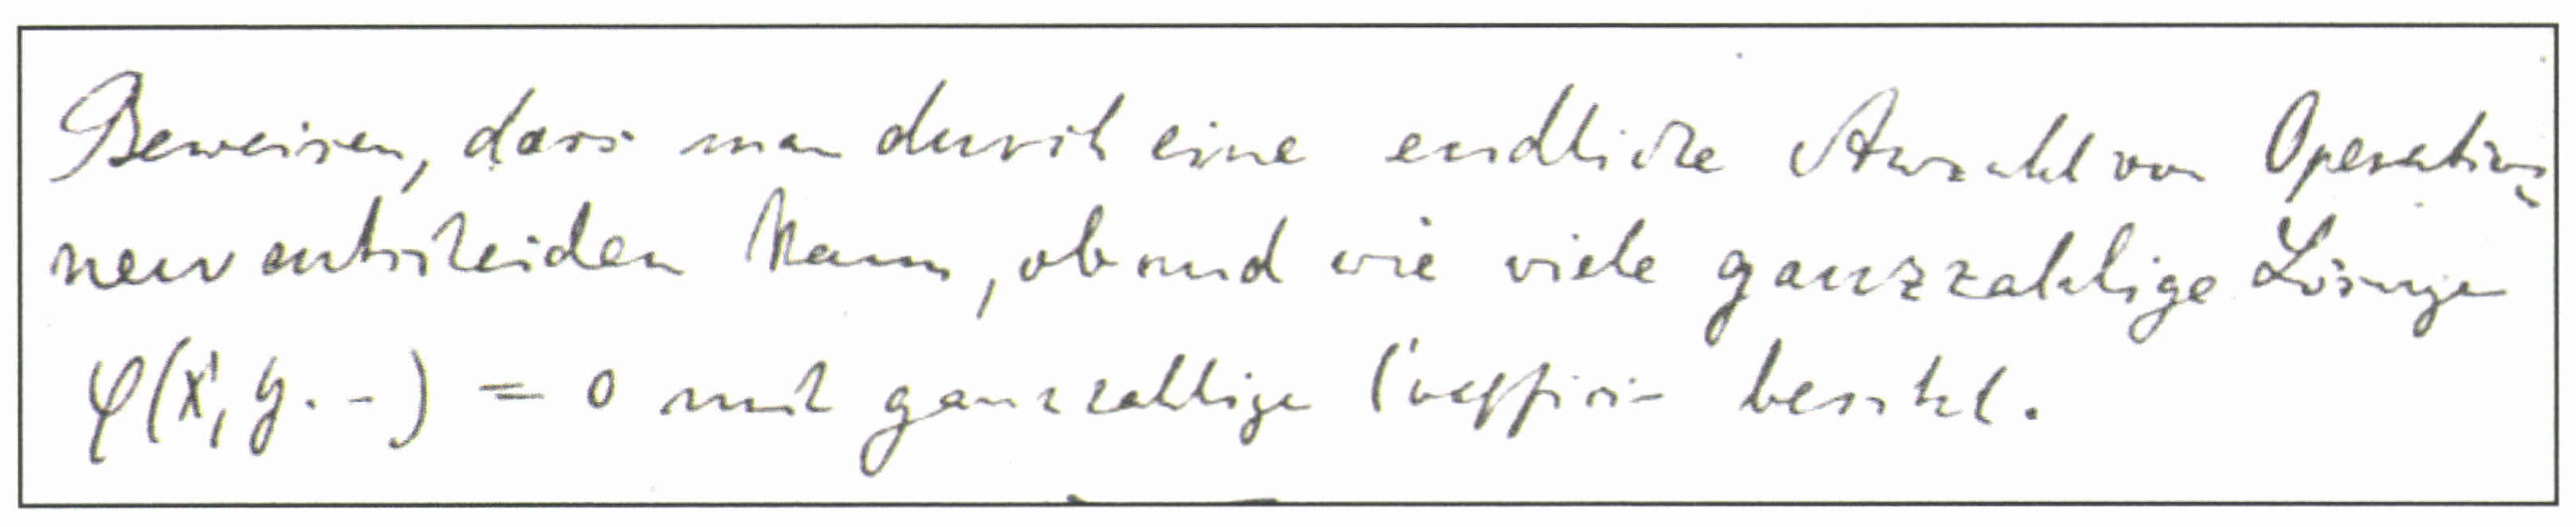 Beweisen, dass man durch eine endliche Anzahl von Operatio-
nen entscheiden kann, ob und wie viele ganzzahlige Lösungen
φ(x, y . . –) = 0 mit ganzzahlige besitzt.